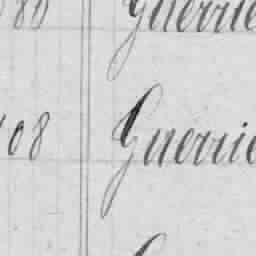 Guerrie
108 Guerrie